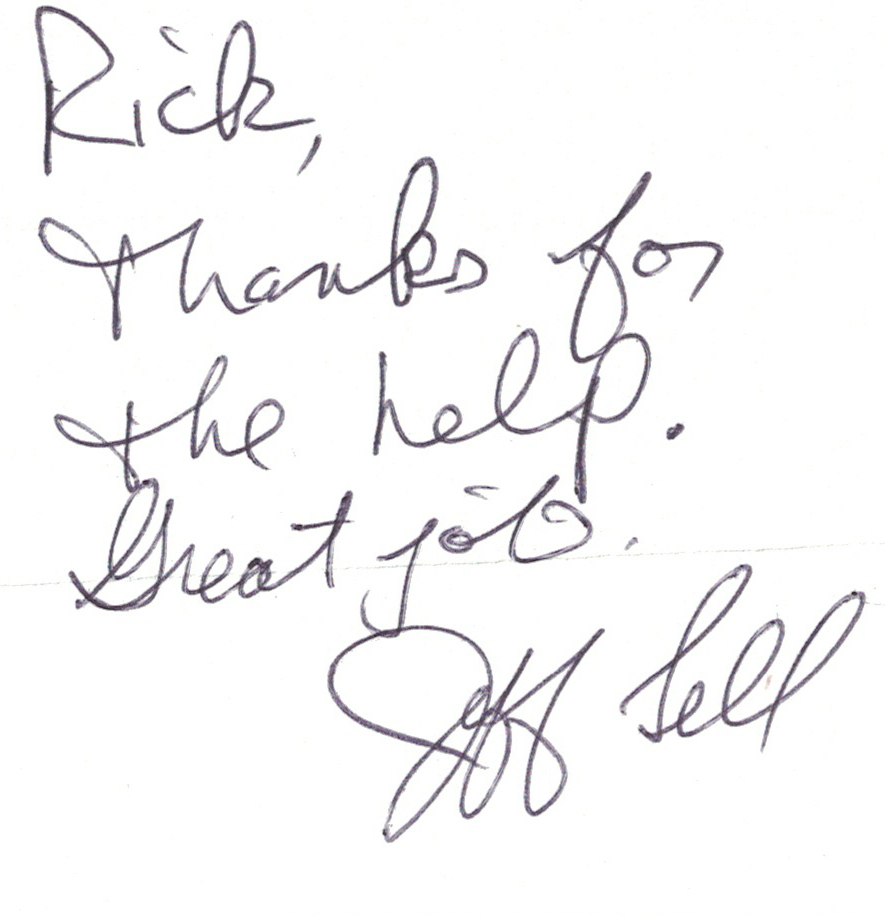 Rick,
Thanks for
the help.
Great job.
Jeff Sell